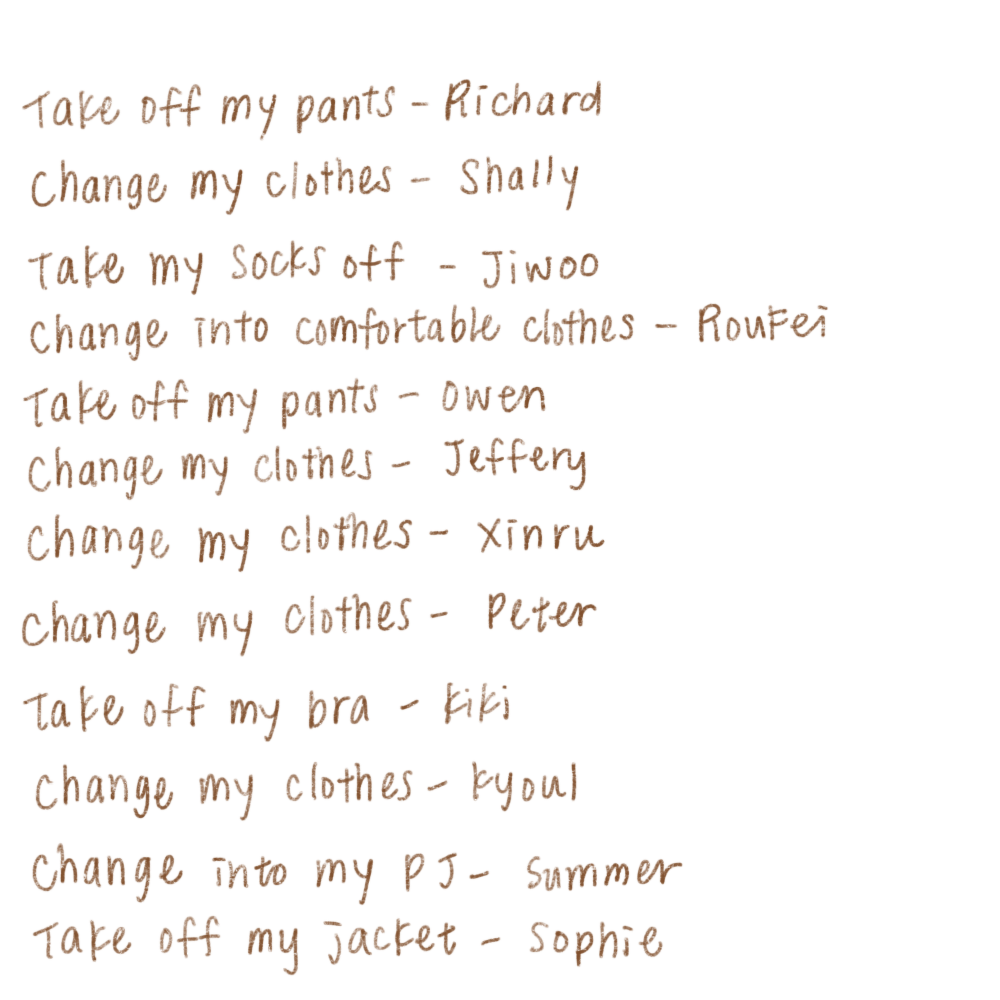 Take off my pants - Richard
Change my clothes - Shally
Take my socks off - Jiwoo
Change into comfortable clothes - RouFei
Take off my pants - Owen
Change my clothes - Jeffery
Change my clothes - Xinru
Change my clothes - Peter
Take off my bra - kiki
Change my clothes - kyoul
Change into my PJ - Summer
Take off my jacket - Sophie